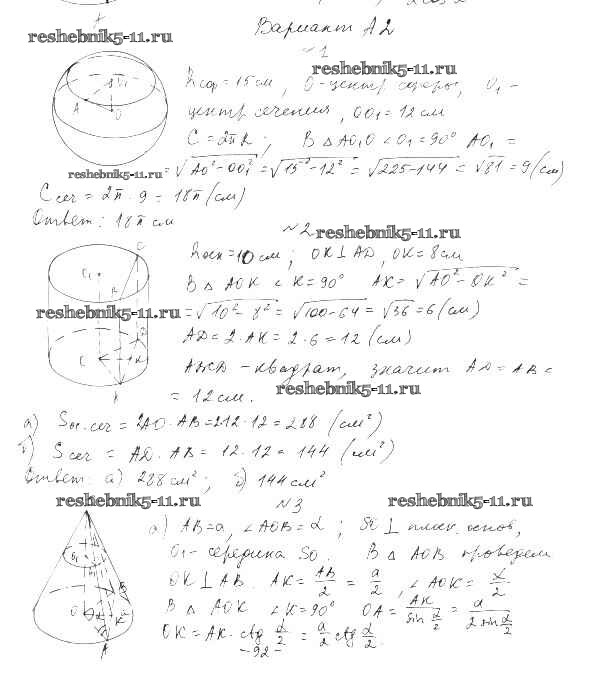 Вариант А2
reshebnik5-11.ru
№1
reshebnik5-11.ru
Rсф = 15 см, O-центр сферы, O₁ -
центр сечения, OO₁ = 12 см
C = 2πR; В △ AO₁O ∠O₁ = 90° AO₁ =
reshebnik5-11.ru
= √AO² - OO₁² = √15² - 12² = √225-144 = √81 = 9 (см)
Cсеч = 2π · 9 = 18π (см)
Ответ: 18π см
№2 reshebnik5-11.ru
Rосн = 10 см; OK ⊥ AD, OK = 8 см
В △ AOK ∠K = 90° AK = √AO² - OK² =
reshebnik5-11.ru
= √10² - 8² = √100-64 = √36 = 6 (см)
AD = 2 · AK = 2 · 6 = 12 (см)
- квадрат, значит AD = AB =
= 12 см.
reshebnik5-11.ru
а) Sос.сеч = 2AO · AB = 2·12·12 = 288 (см²)
б) Sсеч = AD · AB = 12 · 12 = 144 (см²)
Ответ: а) 288 см²; б) 144 см²
reshebnik5-11.ru №3 reshebnik5-11.ru
а) AB = a, ∠AOB = α; SO ⊥ плоск. основ,
O₁ - середина SO. В △ AOB проведем
OK ⊥ AB. AK = AB/2 = a/2, ∠AOK = α/2
В △ AOK ∠K = 90° OA = AK/sin α/2 = a/2 sin α/2
OK = AK · ctg α/2 = a/2 ctg α/2.
-92-